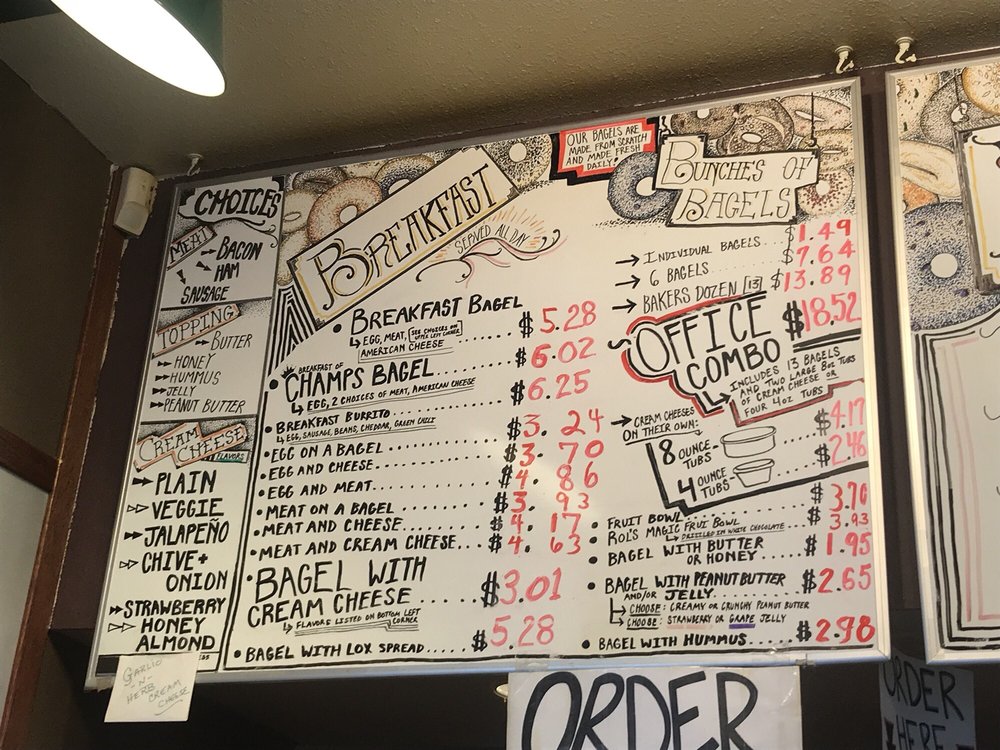 CHOICES
MEAT
BACON
HAM
SAUSAGE
TOPPING
BUTTER
HONEY
HUMMUS
JELLY
PEANUT BUTTER
CREAM CHEESE
FLAVORS
PLAIN
VEGGIE
JALAPEÑO
CHIVE +
ONION
STRAWBERRY
HONEY
ALMOND
GARLIC
-N-
HERB
CREAM
CHEESE
BREAKFAST
SERVED ALL DAY
BREAKFAST BAGEL $5.28
EGG, MEAT, [SEE CHOICES ON
UPPER LEFT CORNER]
AMERICAN CHEESE
BREAKFAST OF
CHAMPS BAGEL $6.02
EGG, 2 CHOICES OF MEAT, AMERICAN CHEESE
BREAKFAST BURRITO $6.25
EGG, SAUSAGE, BEANS, CHEDDAR, GREEN CHILI
EGG ON A BAGEL $3.24
EGG AND CHEESE $3.70
EGG AND MEAT $4.86
MEAT ON A BAGEL $3.93
MEAT AND CHEESE $4.17
MEAT AND CREAM CHEESE $4.63
BAGEL WITH
CREAM CHEESE $3.01
FLAVORS LISTED ON BOTTOM LEFT
CORNER
BAGEL WITH LOX SPREAD $5.28
OUR BAGELS ARE
MADE FROM SCRATCH
AND MADE FRESH
DAILY!
BUNCHES OF
BAGELS
INDIVIDUAL BAGELS $1.49
6 BAGELS $7.64
BAKERS DOZEN [13] $13.89
OFFICE
COMBO $18.52
INCLUDES 13 BAGELS
AND TWO LARGE 8oz TUBS
OF CREAM CHEESE OR
FOUR 4oz TUBS
CREAM CHEESES
ON THEIR OWN:
8 OUNCE
TUBS $4.17
4 OUNCE
TUBS $2.46
FRUIT BOWL $3.70
ROL'S MAGIC FRUI BOWL $3.93
DRIZZLED IN WHITE CHOCOLATE
BAGEL WITH BUTTER
OR HONEY $1.95
BAGEL WITH PEANUT BUTTER
AND/OR JELLY $2.65
CHOOSE: CREAMY OR CRUNCHY PEANUT BUTTER
CHOOSE: STRAWBERRY OR GRAPE JELLY
BAGEL WITH HUMMUS $2.98
ORDER
ORDER
HERE